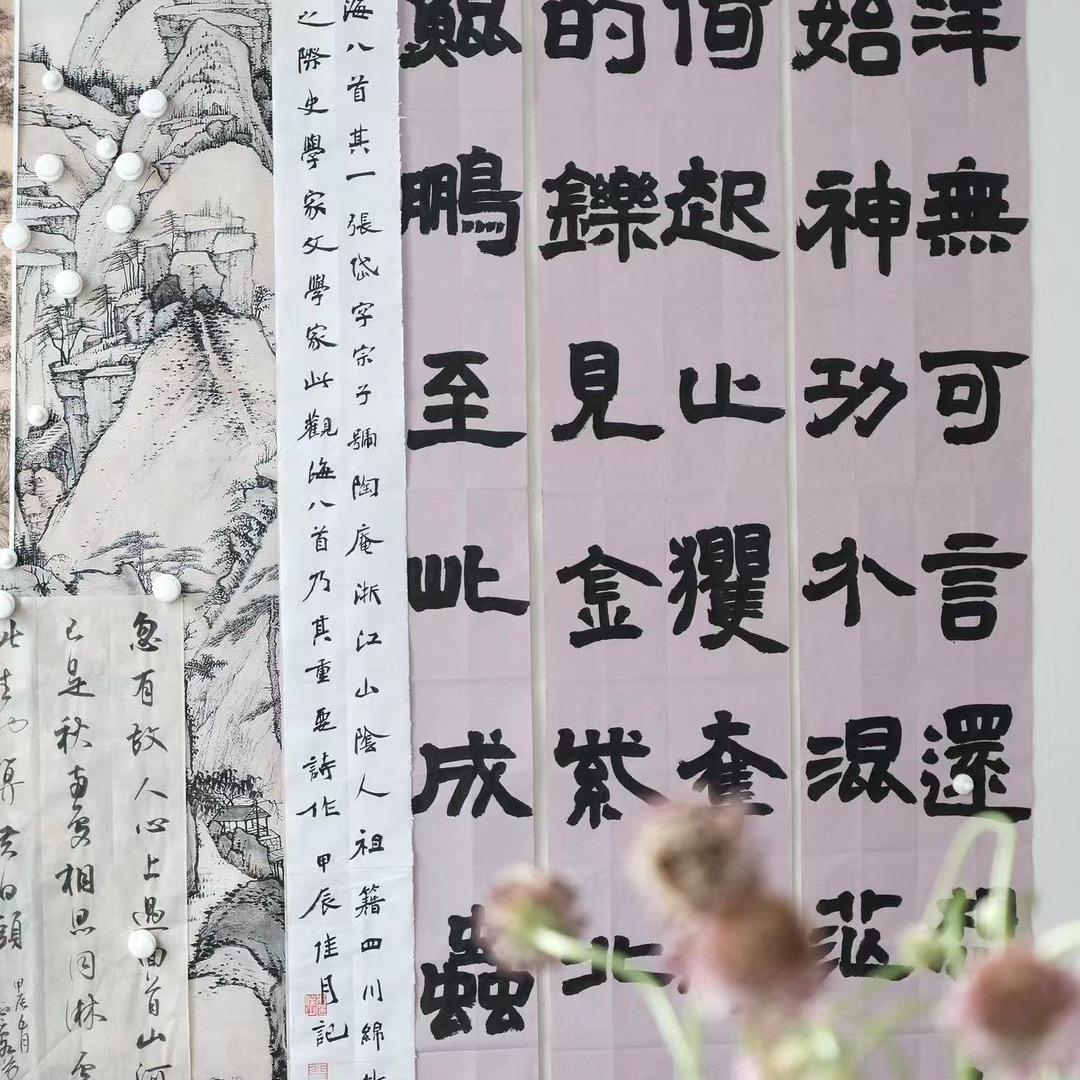 洋無可言還想
始神功不混茫
起止玃奪
的鑠見金紫北
鵬至此成蟲
海八首其一張岱字宗子號陶庵浙江山陰人祖籍四川綿
之際史學家文學家此觀海八首乃其重要詩作甲辰佳月記
忽有故人心上過回首山河
已是秋兩處相思同淋雪
此生也算共白頭